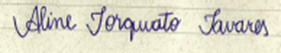 Aline Torquato Tavares